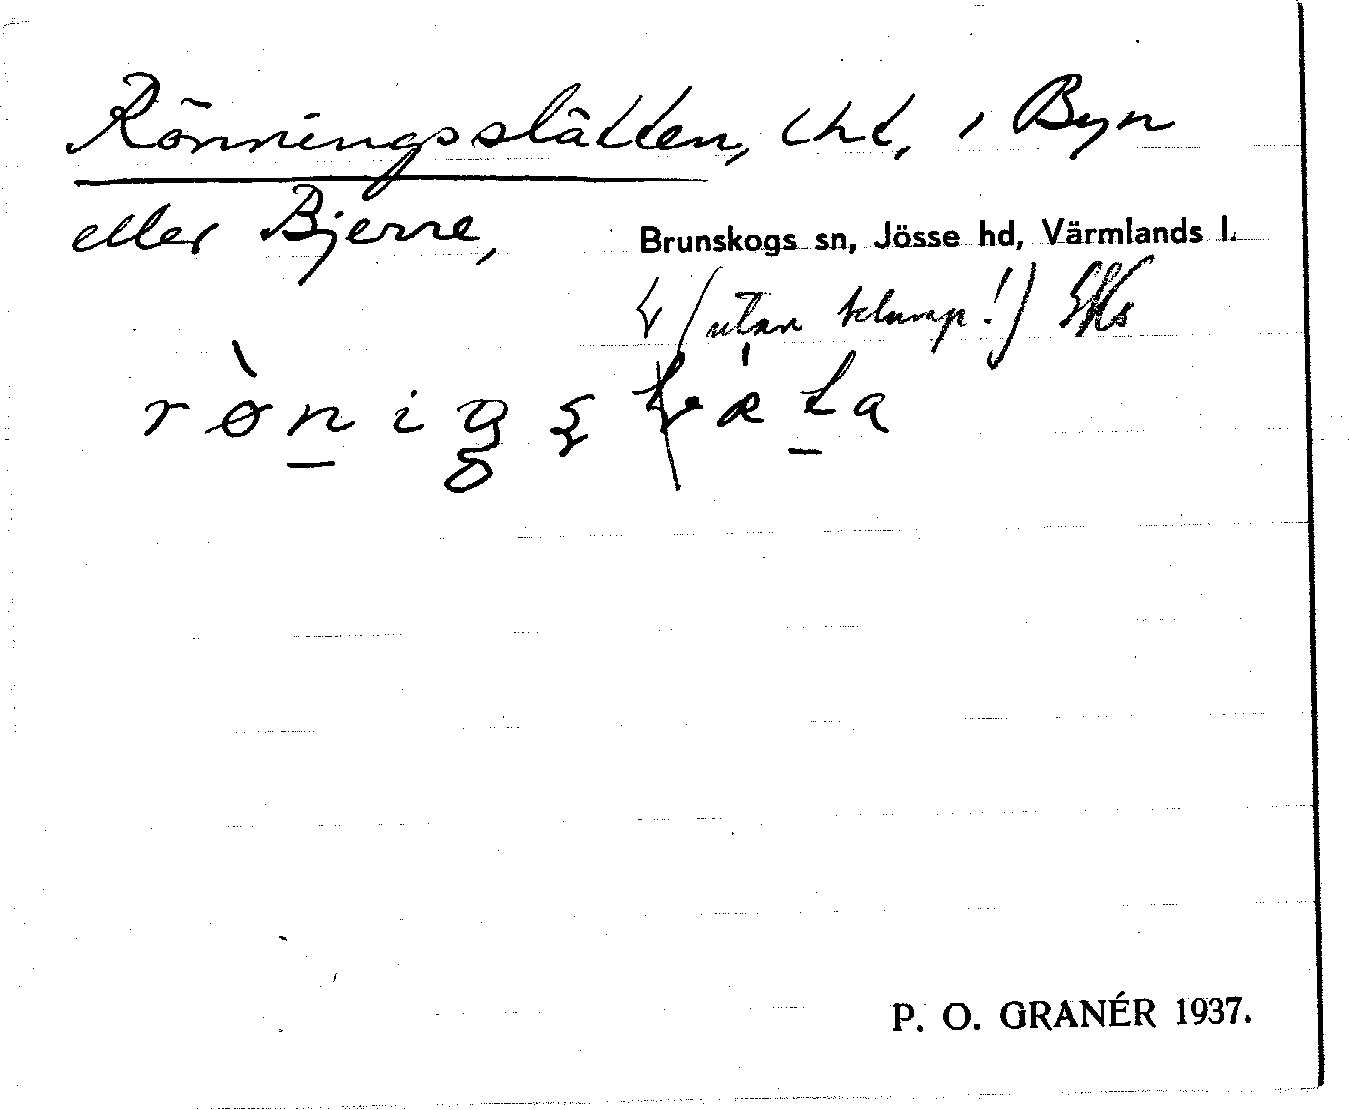 Rönningsslätten, lht, i Byn
eller Bjerre,
Brunskogs sn, Jösse hd, Värmlands l.
(utan klump!)
P. O. GRANÉR 1937.